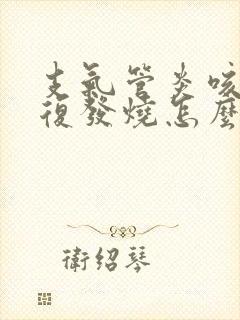 支氣管炎咳
復發燒怎麼
衛紹琴